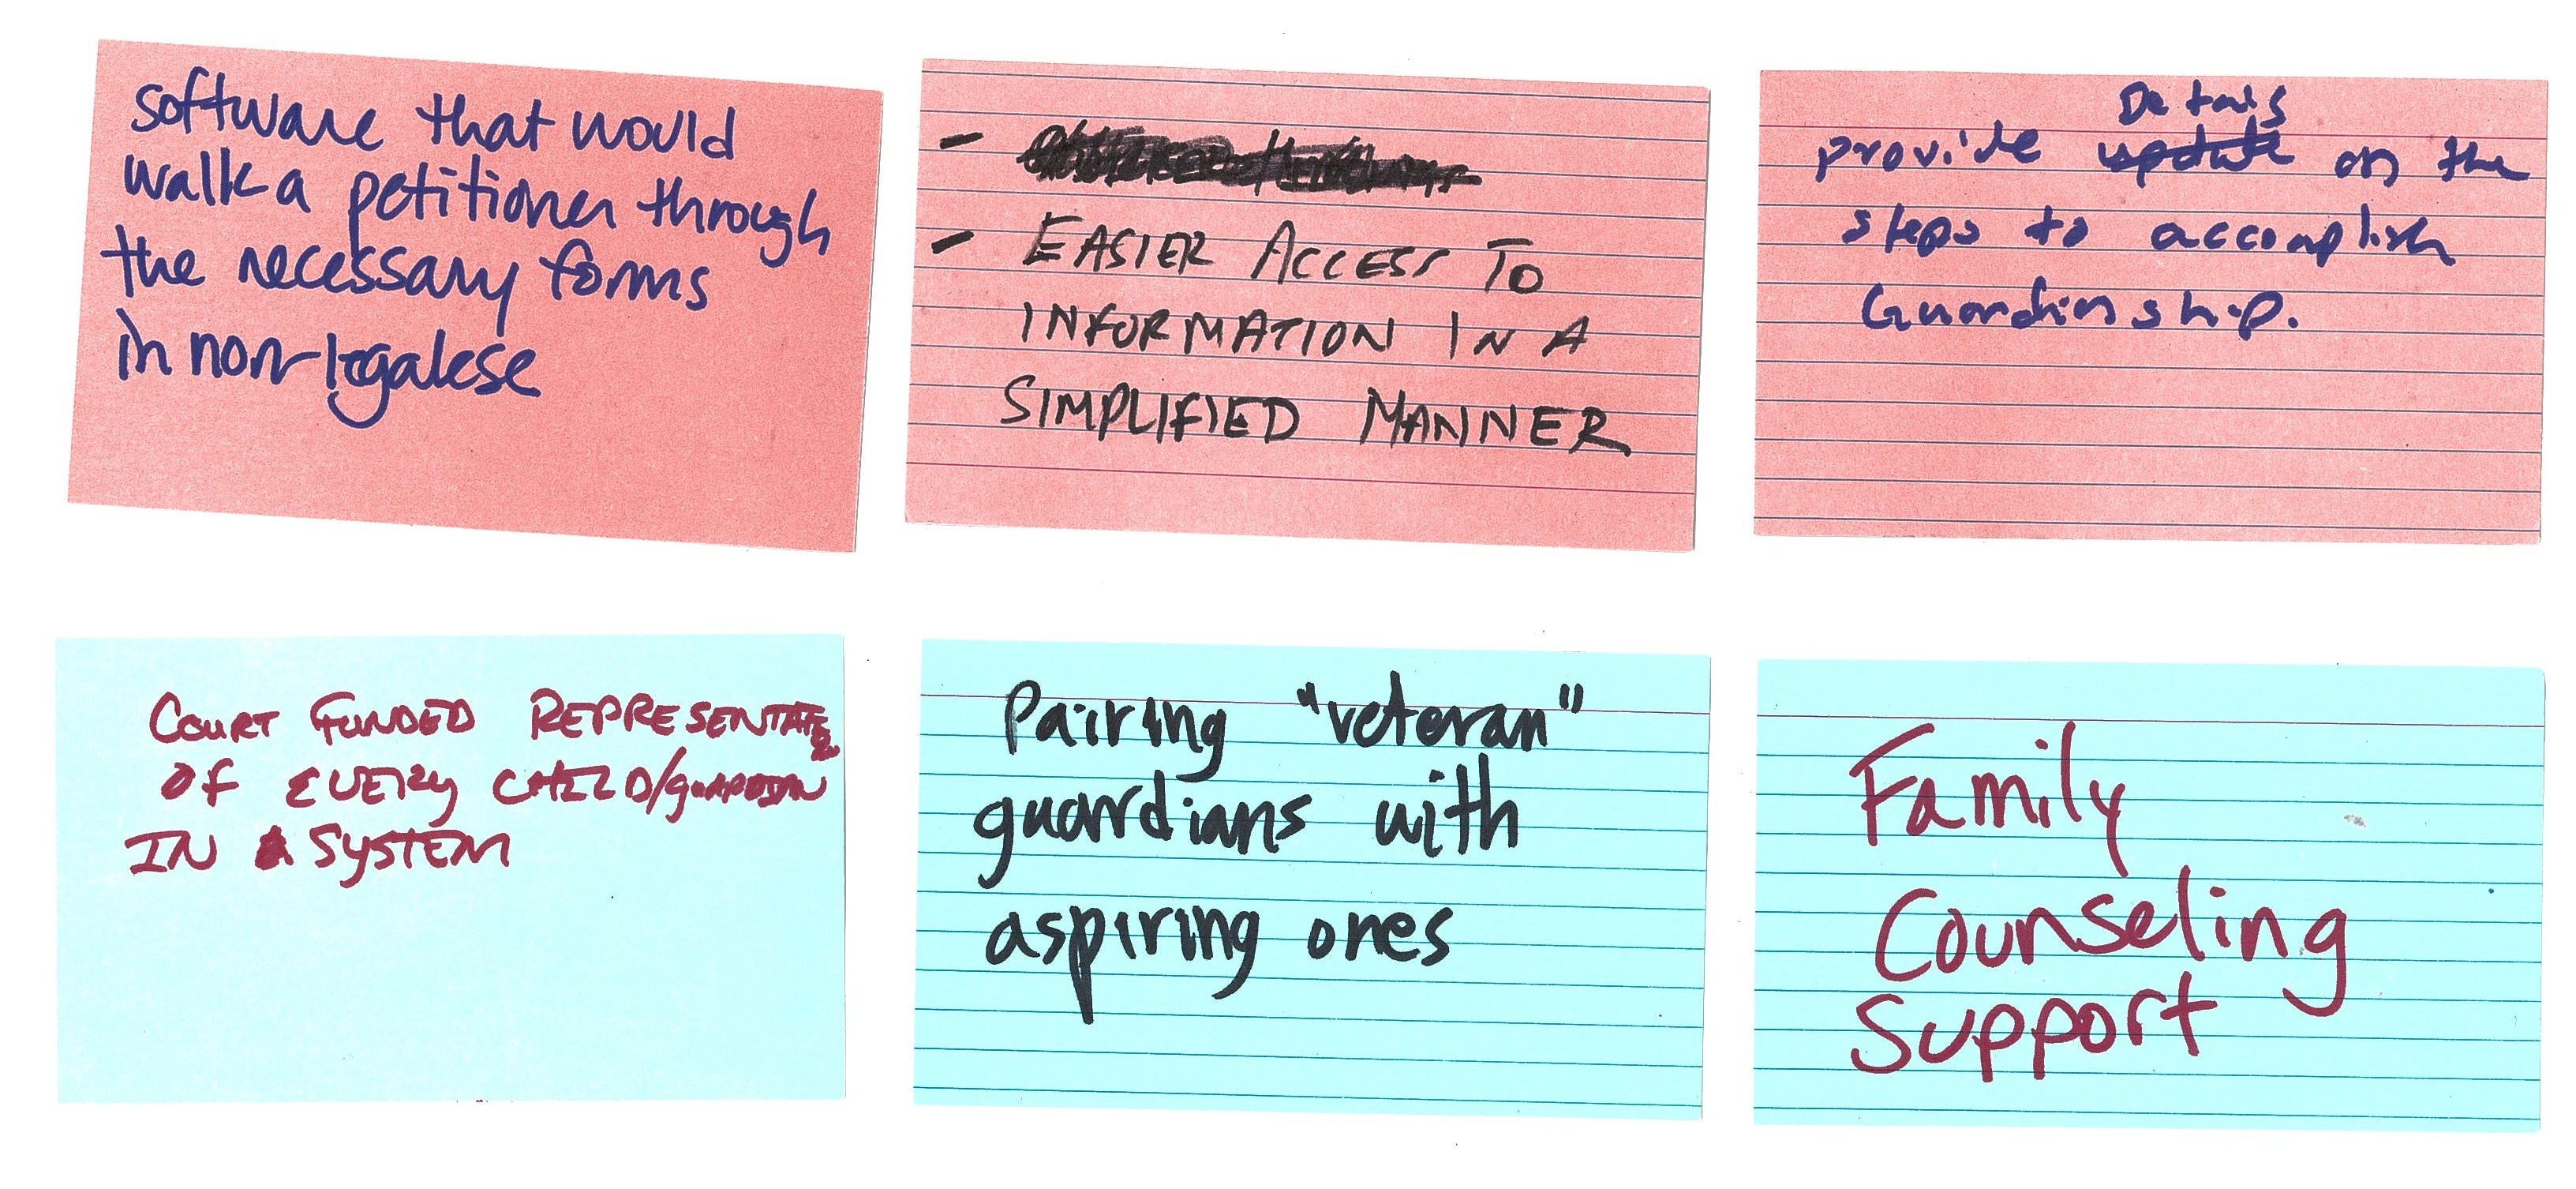 software that would
walk a petitioner through
the necessary forms
in non-legalese
- 
- EASIER ACCESS TO
INFORMATION IN A
SIMPLIFIED MANNER
Details
provide update on the
steps to accomplish
Guardianship.
COURT FUNDED
OF EVERY CHILD/GUARDIAN
IN SYSTEM
Pairing "veteran"
guardians with
aspiring ones
Family
Counseling
Support